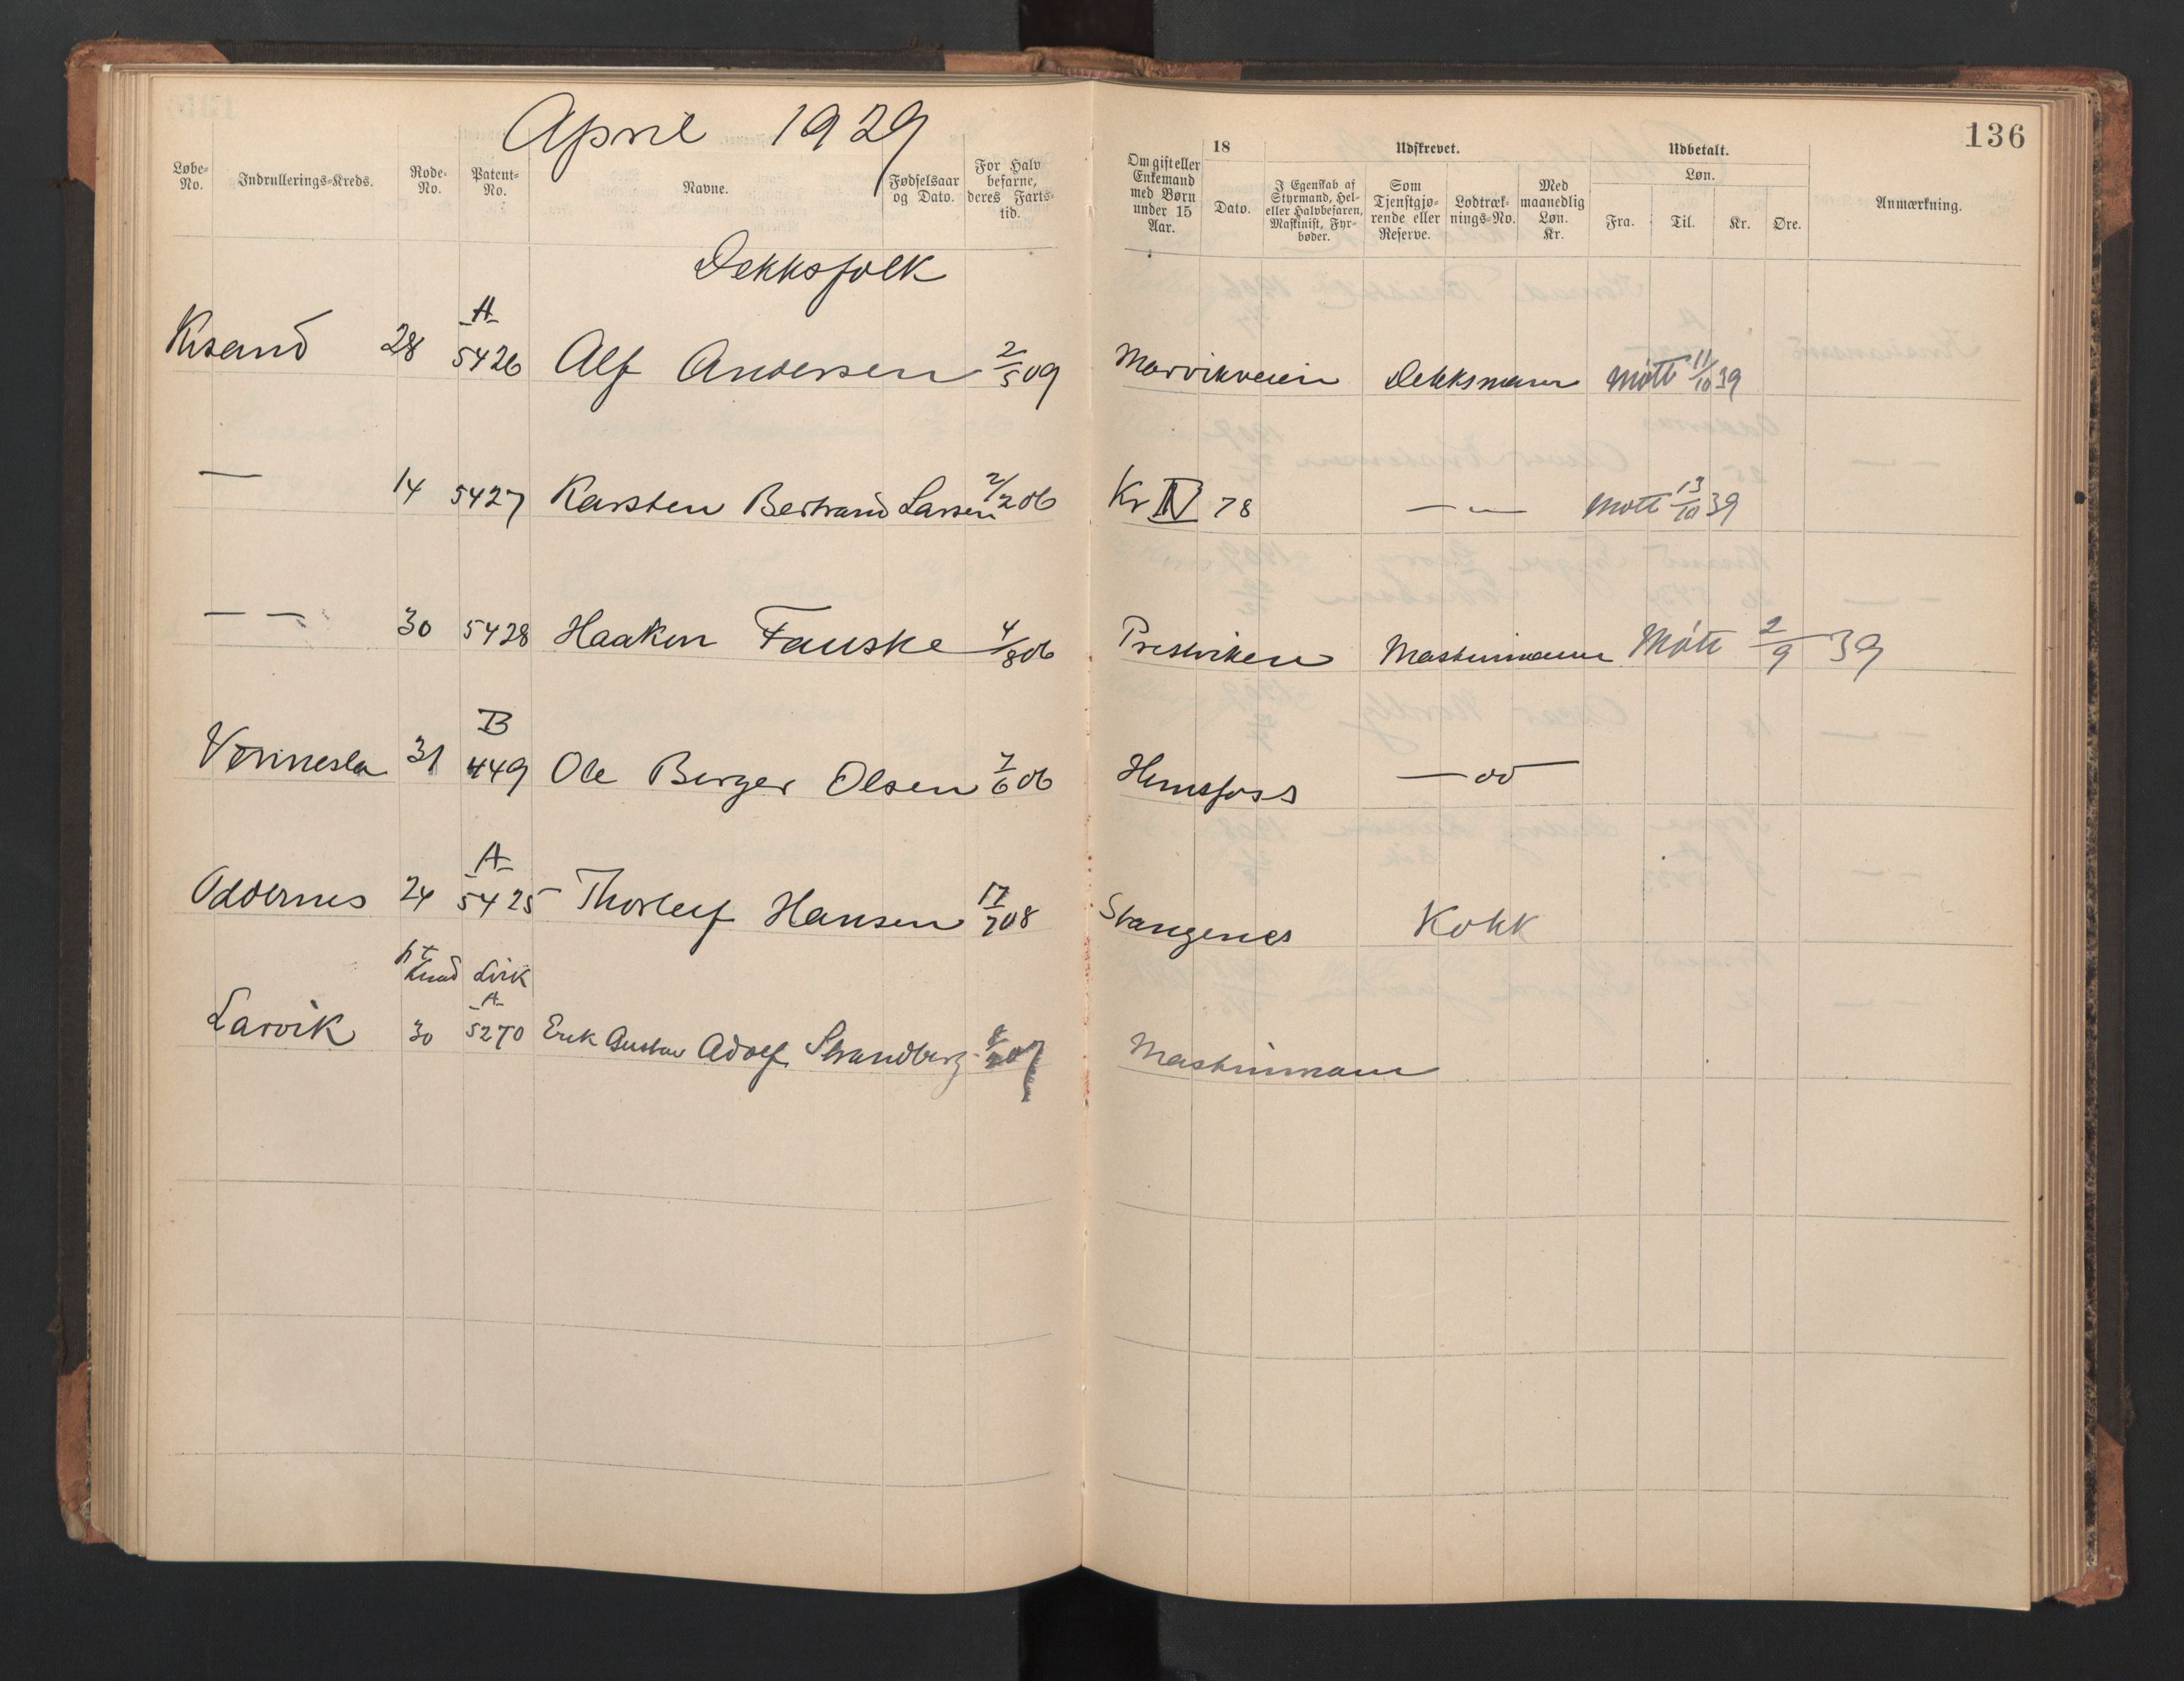 136
April 1929
Løbe-No. Indrullerings-Kreds. Rode-No. Patent-No. Navne. Fødselsaar og Dato. For Halvbefarne, deres Fartstid.
Om gift eller Enkemand med Børn under 15 Aar. 18 Dato. Udskrevet. J Egenskab af Styrmand, Hel- eller Halvbefaren, Maskinist, Fyrbøder. Som Tjenstgjørende eller Reserve. Lodtræknings-No. Med maanedlig Løn. Kr. Udbetalt. Løn. Fra. Til. Kr. Øre. Anmærkning.
Dekksfolk
Krsand 28 A 5426 Alf Andersen 2/5 09 Marvikveien Dekksmann Møtt 11/10 39
— 14 5427 Karsten Bertrand Larsen 2/2 06 Kr IV 78 — — Møtt 13/10 39
— — 30 5428 Haakon Fauske 4/8 06 Prestviken Maskinmann Møtt 2/9 39
Vennesla 31 B 449 Ole Berger Olsen 7/6 06 Hunsfoss — oo —
Oddernes 24 A 5425 Thorleif Hansen 17/7 08 Stangenes Kokk
Larvik 30 A 5270 Erik Gustav Adolf Strandberg 07 Maskinmann